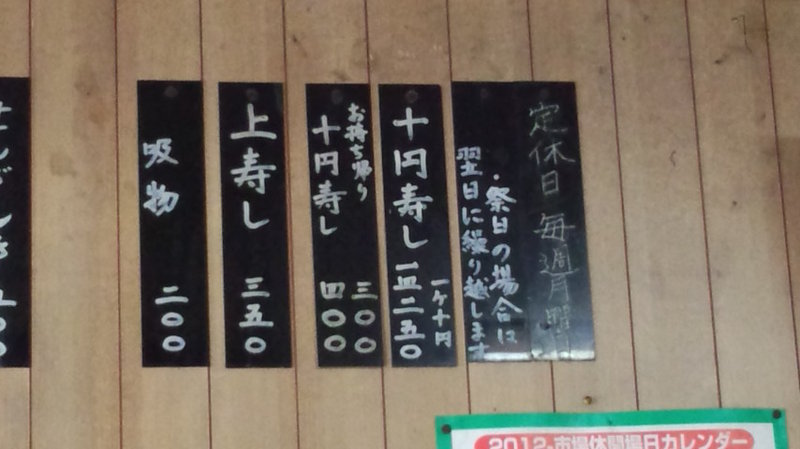 定休日 毎週月曜
・祭日の場合は
翌日に繰り越します
十円寿し 一皿二五〇
一ケ十円
お持ち帰り
十円寿し
三〇〇
四〇〇
上寿し 三五〇
吸物 二〇〇
2012・市場休開場日カレンダー